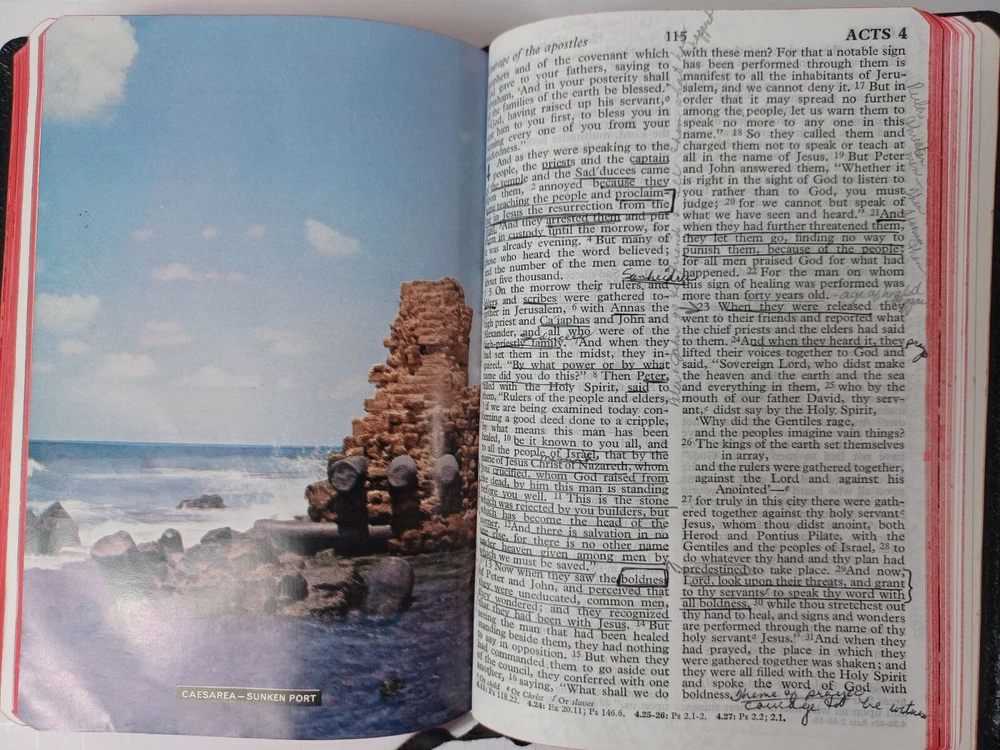 CAESAREA—SUNKEN PORT
of the apostles
115
ACTS 4
and of the covenant which
gave to your fathers, saying to
'And in your posterity shall
the families of the earth be blessed.'
having raised up his servant,ᵒ
him to you first, to bless you in
every one of you from your
4 And as they were speaking to the
people, the priests and the captain
of the temple and the Sad′ducees came
upon them, 2 annoyed because they
were teaching the people and proclaim-
ing in Jesus the resurrection from the
3 And they arrested them and put
them in custody until the morrow, for
it was already evening. 4 But many of
those who heard the word believed;
and the number of the men came to
about five thousand.
5 On the morrow their rulers and
elders and scribes were gathered to-
gether in Jerusalem, 6 with Annas the
high priest and Ca′iaphas and John and
Alexander, and all who were of the
high-priestly family. 7 And when they
had set them in the midst, they in-
quired, "By what power or by what
name did you do this?" 8 Then Peter,
filled with the Holy Spirit, said to
them, "Rulers of the people and elders,
9 if we are being examined today con-
cerning a good deed done to a cripple,
by what means this man has been
healed, 10 be it known to you all, and
to all the people of Israel, that by the
name of Jesus Christ of Nazareth, whom
you crucified, whom God raised from
the dead, by him this man is standing
before you well. 11 This is the stone
which was rejected by you builders, but
which has become the head of the
corner. 12 And there is salvation in no
one else, for there is no other name
under heaven given among men by
which we must be saved."
13 Now when they saw the boldness
of Peter and John, and perceived that
they were uneducated, common men,
they wondered; and they recognized
that they had been with Jesus. 14 But
seeing the man that had been healed
standing beside them, they had nothing
to say in opposition. 15 But when they
had commanded them to go aside out
of the council, they conferred with one
another, 16 saying, "What shall we do
Sanhedrin
with these men? For that a notable sign
has been performed through them is
manifest to all the inhabitants of Jeru-
salem, and we cannot deny it. 17 But in
order that it may spread no further
among the people, let us warn them to
speak no more to any one in this
name." 18 So they called them and
charged them not to speak or teach at
all in the name of Jesus. 19 But Peter
and John answered them, "Whether it
is right in the sight of God to listen to
you rather than to God, you must
judge; 20 for we cannot but speak of
what we have seen and heard." 21 And
when they had further threatened them,
they let them go, finding no way to
punish them, because of the people;
for all men praised God for what had
happened. 22 For the man on whom
this sign of healing was performed was
more than forty years old.
23 When they were released they
went to their friends and reported what
the chief priests and the elders had said
to them. 24 And when they heard it, they
lifted their voices together to God and
said, "Sovereign Lord, who didst make
the heaven and the earth and the sea
and everything in them, 25 who by the
mouth of our father David, thy serv-
ant,ᵒ didst say by the Holy Spirit,
'Why did the Gentiles rage,
and the peoples imagine vain things?
26 The kings of the earth set themselves
in array,
and the rulers were gathered together,
against the Lord and against his
Anointed'—ᵉ
27 for truly in this city there were gath-
ered together against thy holy servantᵒ
Jesus, whom thou didst anoint, both
Herod and Pontius Pilate, with the
Gentiles and the peoples of Israel, 28 to
do whatever thy hand and thy plan had
predestined to take place. 29 And now,
Lord, look upon their threats, and grant
to thy servantsᶠ to speak thy word with
all boldness, 30 while thou stretchest out
thy hand to heal, and signs and wonders
are performed through the name of thy
holy servantᵒ Jesus." 31 And when they
had prayed, the place in which they
were gathered together was shaken; and
they were all filled with the Holy Spirit
and spoke the word of God with
boldness.
Theme of prayer
courage to be witness
Or child ᵉ Or Christ ᶠ Or slaves
4.11: Ps 118.22. 4.24: Ex 20.11; Ps 146.6. 4.25-26: Ps 2.1-2. 4.27: Ps 2.2; 2.1.